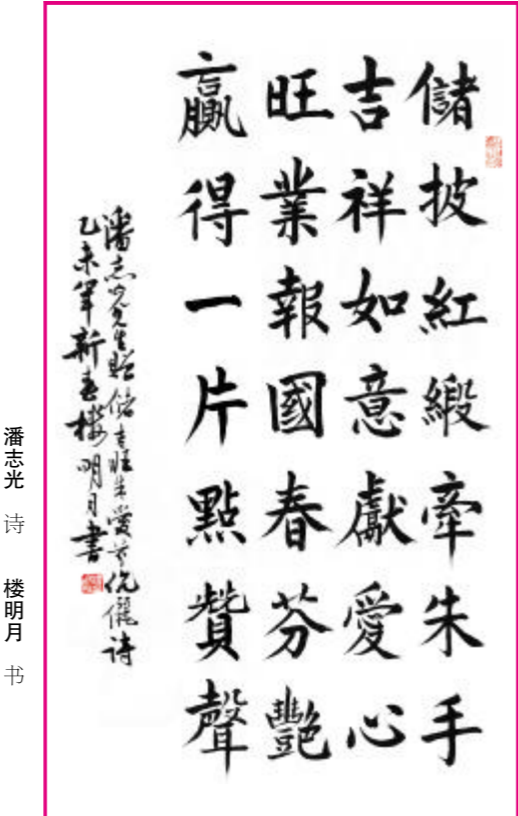 儲披紅緞牽朱手
吉祥如意獻愛心
旺業報國春芬艷
贏得一片點贊聲
潘志光先生贈儲吉旺朱愛芬伉儷诗
乙未年新春楼明月書
潘志光 诗 楼明月 书